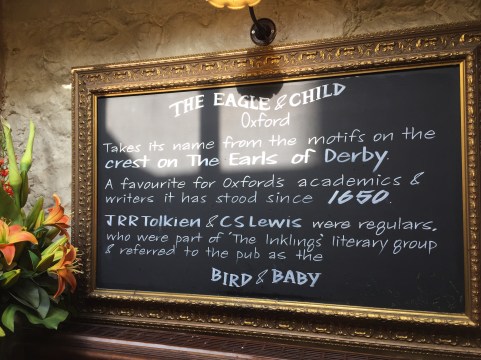 THE EAGLE & CHILD
Oxford
Takes its name from the motifs on the
crest on The Earls of Derby.
A favourite for Oxford's academics &
writers it has stood since 1650.
JRR Tolkien & CS Lewis were regulars,
who were part of 'The Inklings' literary group
& referred to the pub as the
BIRD & BABY